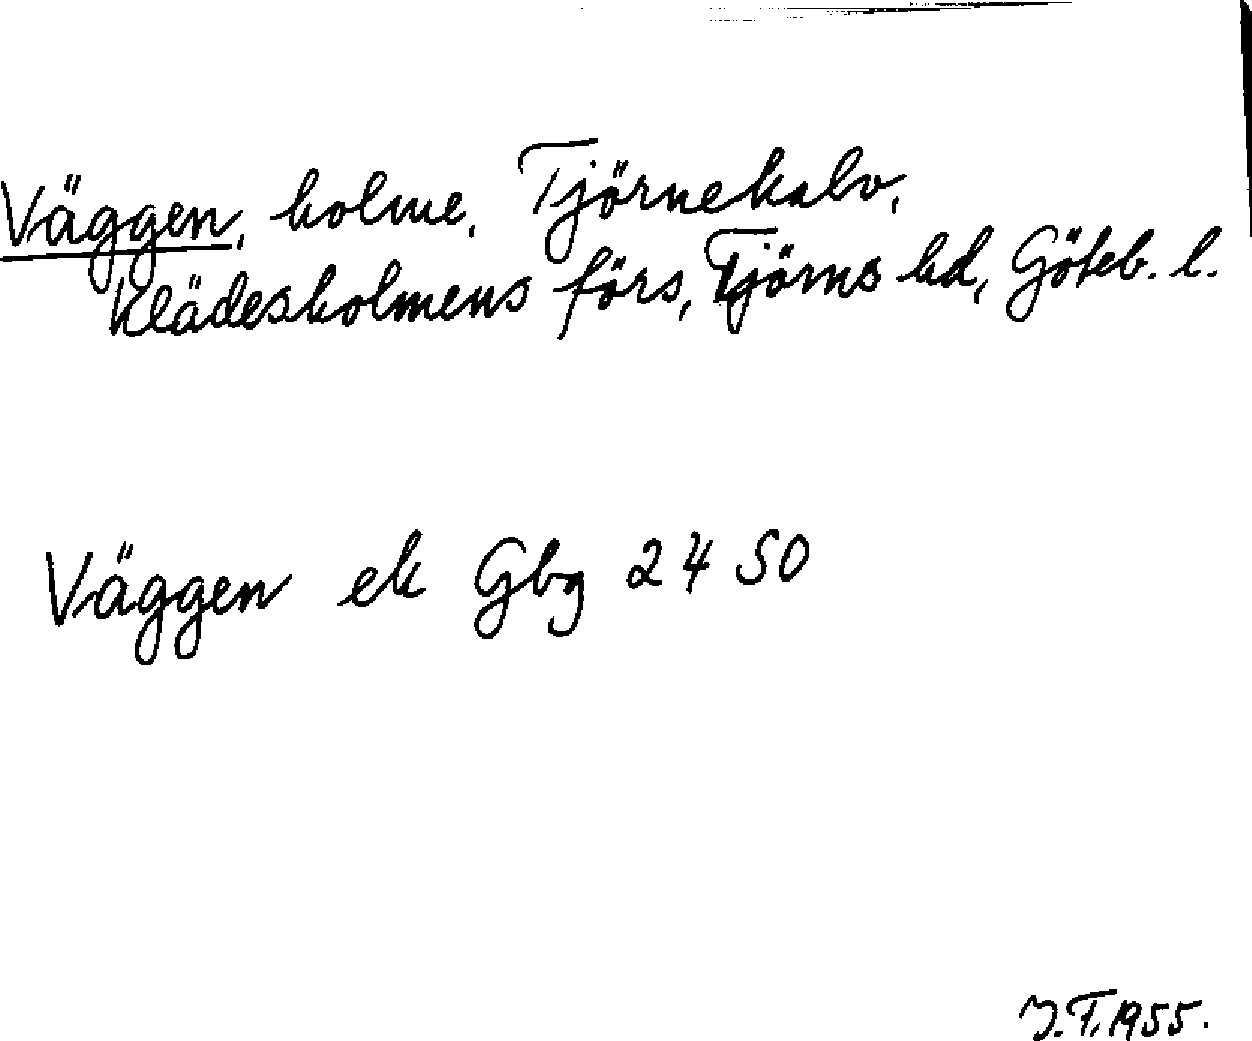 Väggen, holme, Tjörnekalv,
Klädesholmens förs, Tjörns hd, Göteb. l.
Väggen ek Gbg 2450
J.T. 1955.